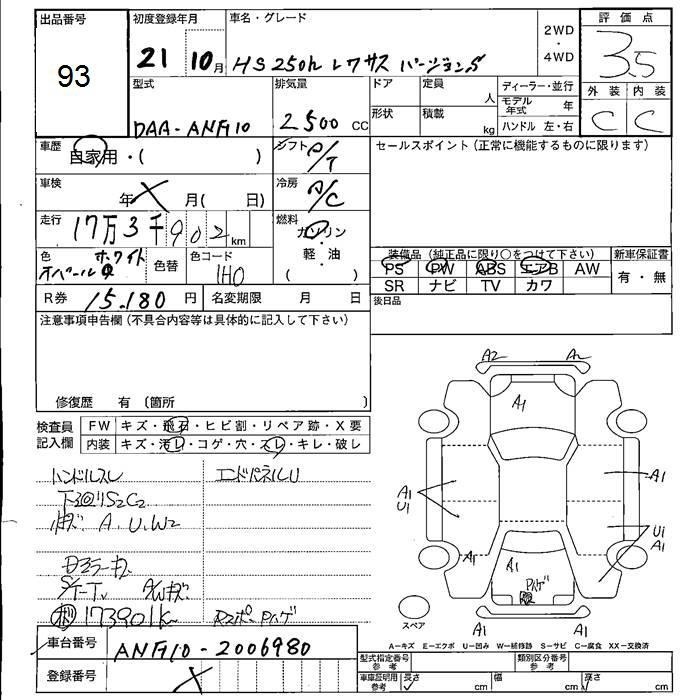 出品番号 初度登録年月 車名・グレード 評価点
93
21 10月 HS250h レクサス バージョンS
2WD・4WD
3.5
型式 排気量 ドア 定員 人 ディーラー・並行 外装 内装
モデル年式 年
DAA-ANF10 2500 CC 形状 積載 kg ハンドル 左・右 C C
車歴 自家用・( ) シフト P/T セールスポイント(正常に機能するものに限ります)
車検 年 X 月( 日) 冷房 A/C
走行 17万3千902km 燃料 ガソリン・軽・油 ( )
色 ホワイト オパール 色替 色コード 1H0
装備品(純正品に限り○をつけて下さい) 新車保証書
PS PW ABS エアB AW 有・無
SR ナビ TV カワ
R券 15.180円 名変期限 月 日 後日品
注意事項申告欄(不具合内容等は具体的に記入して下さい)
修復歴 有(箇所 )
検査員記入欄 FW キズ・飛石・ヒビ割・リペア跡・X要
内装 キズ・汚レ・コゲ・穴・スレ・キレ・破レ
ハンドルスレ エンドパネルU
下3@リS2C2
A.U.W2
S/T-T A/Wキズ
173901k Rスポ-Pハゲ
A2 A2
A1
A1 U1
A1
U1 A1
A1
A1
Pハゲ
A1 A1
スペア
A=キズ E=エクボ U=凹み W=補修跡 S=サビ C=腐食 XX=交換済
車台番号 ANF10-2006980
登録番号 X
型式指定番号 参考 類別区分番号 参考
車庫証明用 参考 長さ cm 幅 cm 高さ cm